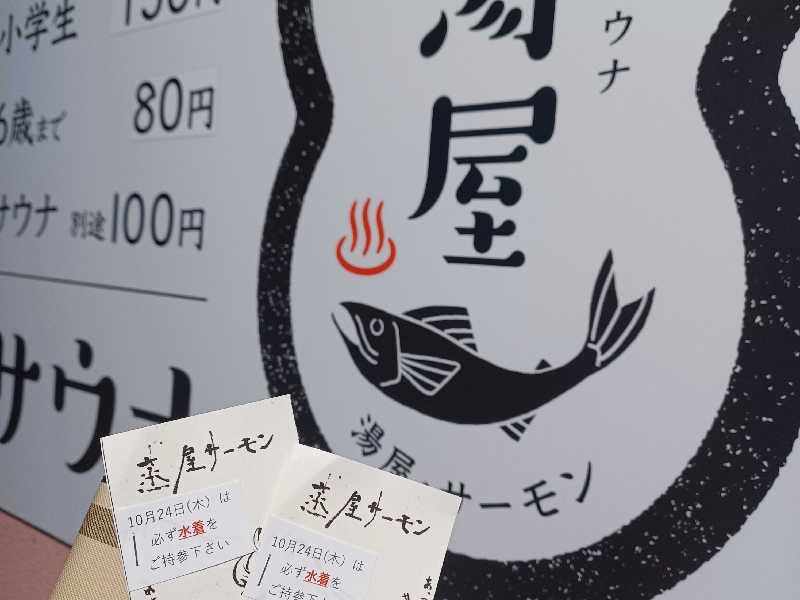 小学生 150円
6歳まで 80円
サウナ 別途100円
サウナ
湯屋
ウナ
湯屋・サーモン
蒸屋サーモン
10月24日(木) は
必ず水着を
ご持参下さい
蒸屋サーモン
10月24日(木) は
必ず水着を
ご持参下